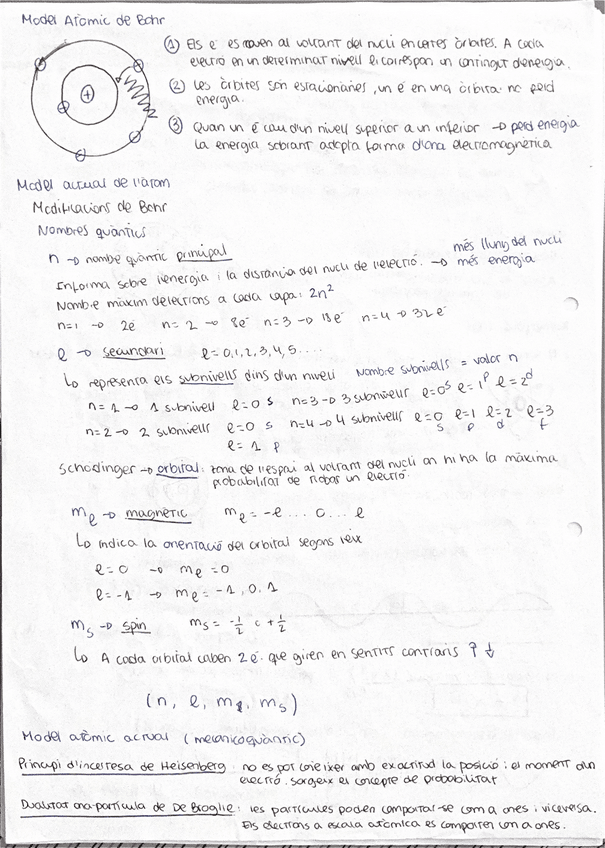 Model Atòmic de Bohr
① Els e⁻ es mouen al voltant del nucli en certes òrbites. A cada
electró en un determinat nivell li correspon un contingut d'energia.
② Les òrbites són estacionàries, un e⁻ en una òrbita no perd
energia.
③ Quan un e⁻ cau d'un nivell superior a un inferior → perd energia
La energia sobrant adopta forma d'ona electromagnètica
+
Model actual de l'àtom
Modificacions de Bohr
Nombres quàntics
n → nombre quàntic principal
Informa sobre l'energia i la distància del nucli de l'electró. → més lluny del nucli
més energia
Nombre màxim d'electrons a cada capa: 2n²
n=1 → 2e⁻ n=2 → 8e⁻ n=3 → 18e⁻ n=4 → 32e⁻
l → secundari l=0,1,2,3,4,5....
↳ representa els subnivells dins d'un nivell Nombre subnivells = valor n
n=1 → 1 subnivell l=0 s n=3 → 3 subnivells l=0 s l=1 p l=2 d
n=2 → 2 subnivells l=0 s n=4 → 4 subnivells l=0 l=1 l=2 l=3
l=1 p s p d f
Schödinger → orbital: zona de l'espai al voltant del nucli on hi ha la màxima
probabilitat de trobar un electró.
mₗ → magnètic mₗ = -l ... 0 ... l
↳ indica la orientació del orbital segons l'eix
l=0 → mₗ=0
l=-1 → mₗ=-1,0,1
mₛ → spin mₛ = -½ o +½
↳ A cada orbital caben 2e⁻ que giren en sentits contraris ↑ ↓
(n, l, mₗ, mₛ)
Model atòmic actual (mecanicoquàntic)
Principi d'incertesa de Heisenberg: no es pot conèixer amb exactitud la posició i el moment d'un
electró, sorgeix el concepte de probabilitat
Dualitat ona-partícula de De Broglie: les partícules poden comportar-se com a ones i viceversa.
Els electrons a escala atòmica es comporten com a ones.